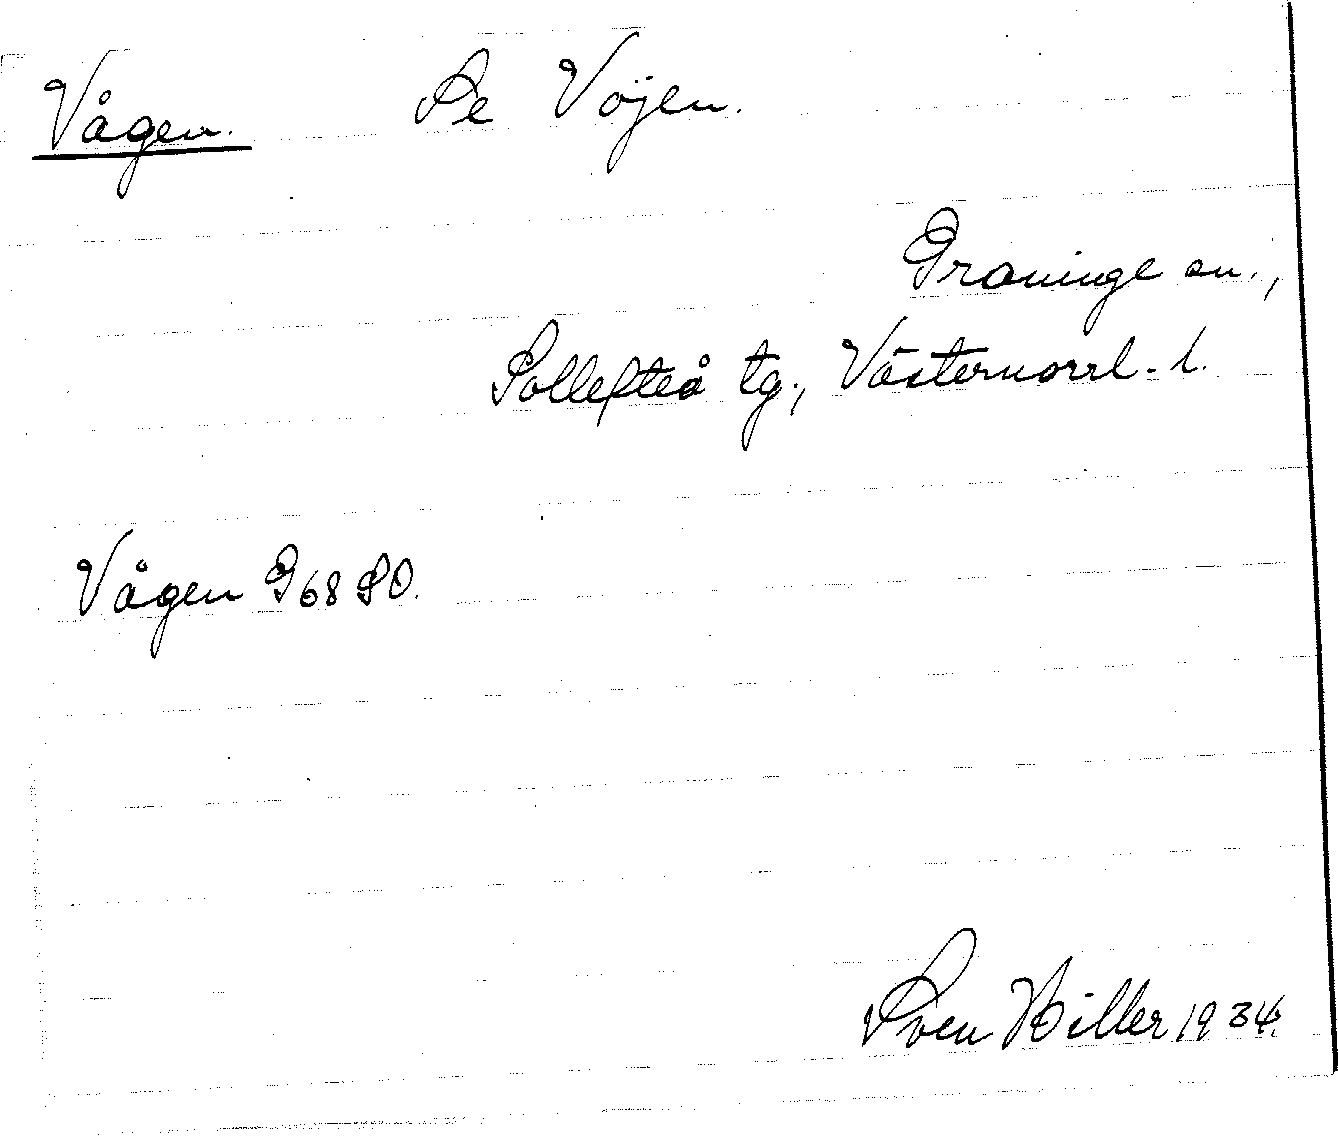 Vågen. Se Vöjen.
Graninge sn.,
Sollefteå tg., Västernorrl. l.
Vågen G68 SO.
Sven Hiller 1934.